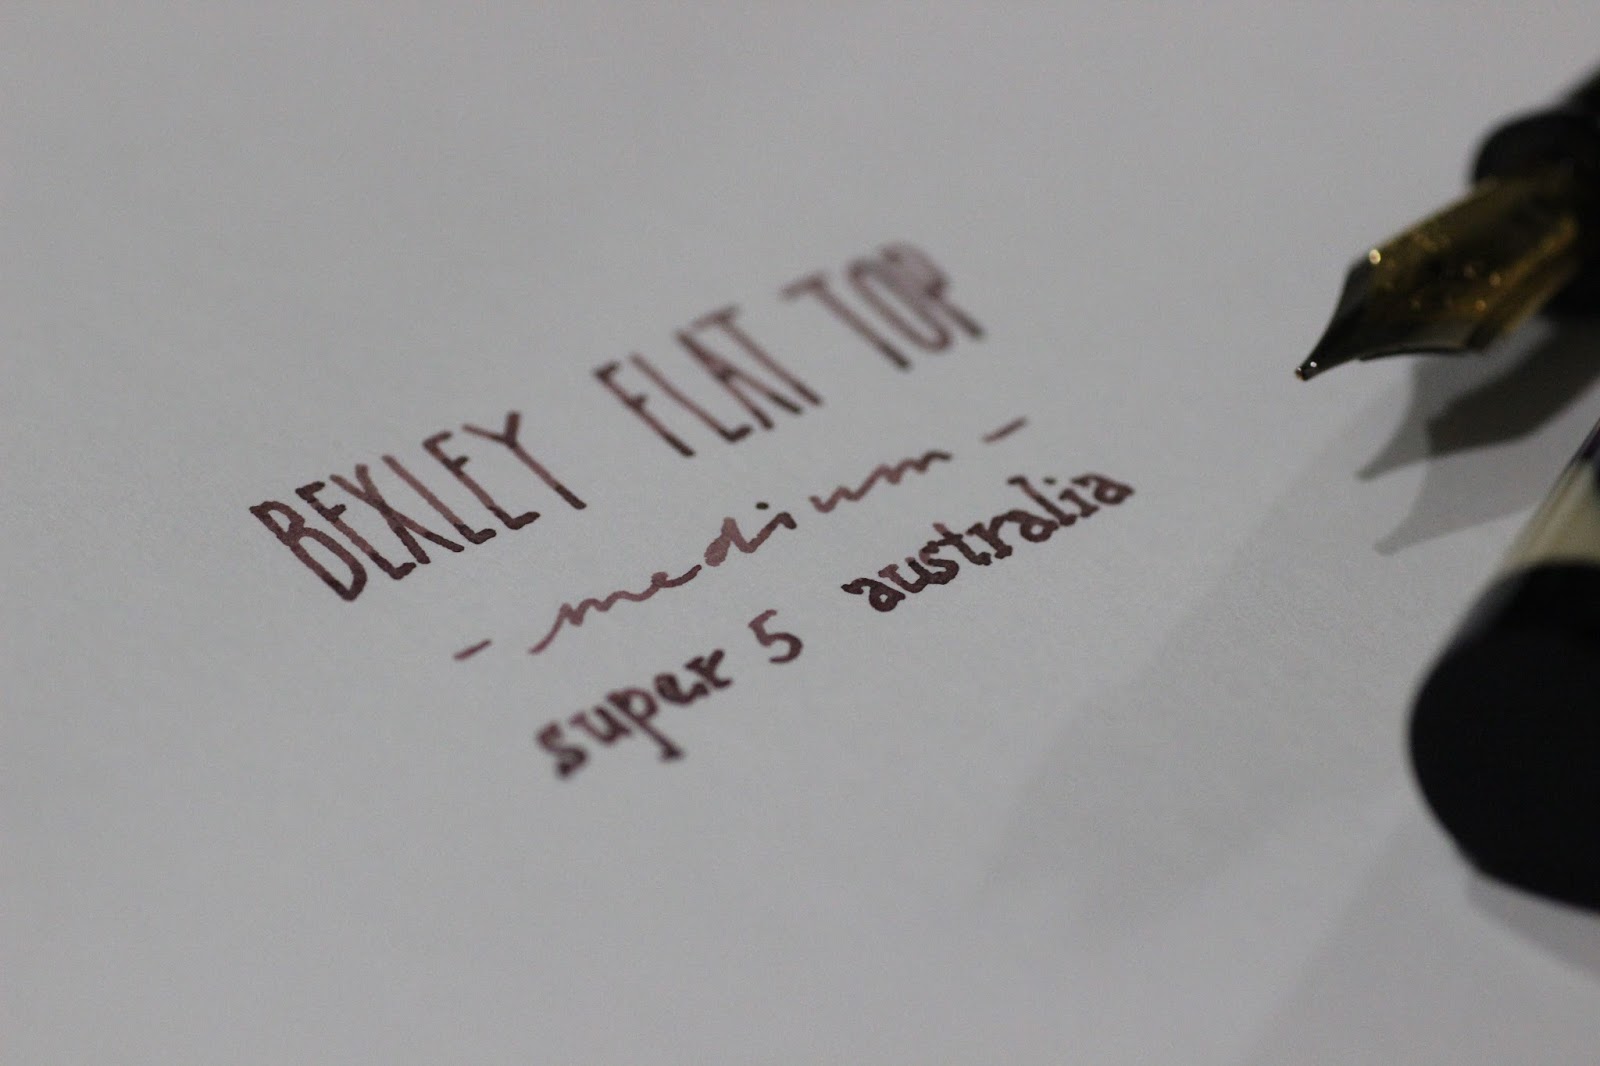 BEXLEY FLAT TOP
- medium -
super 5 australia